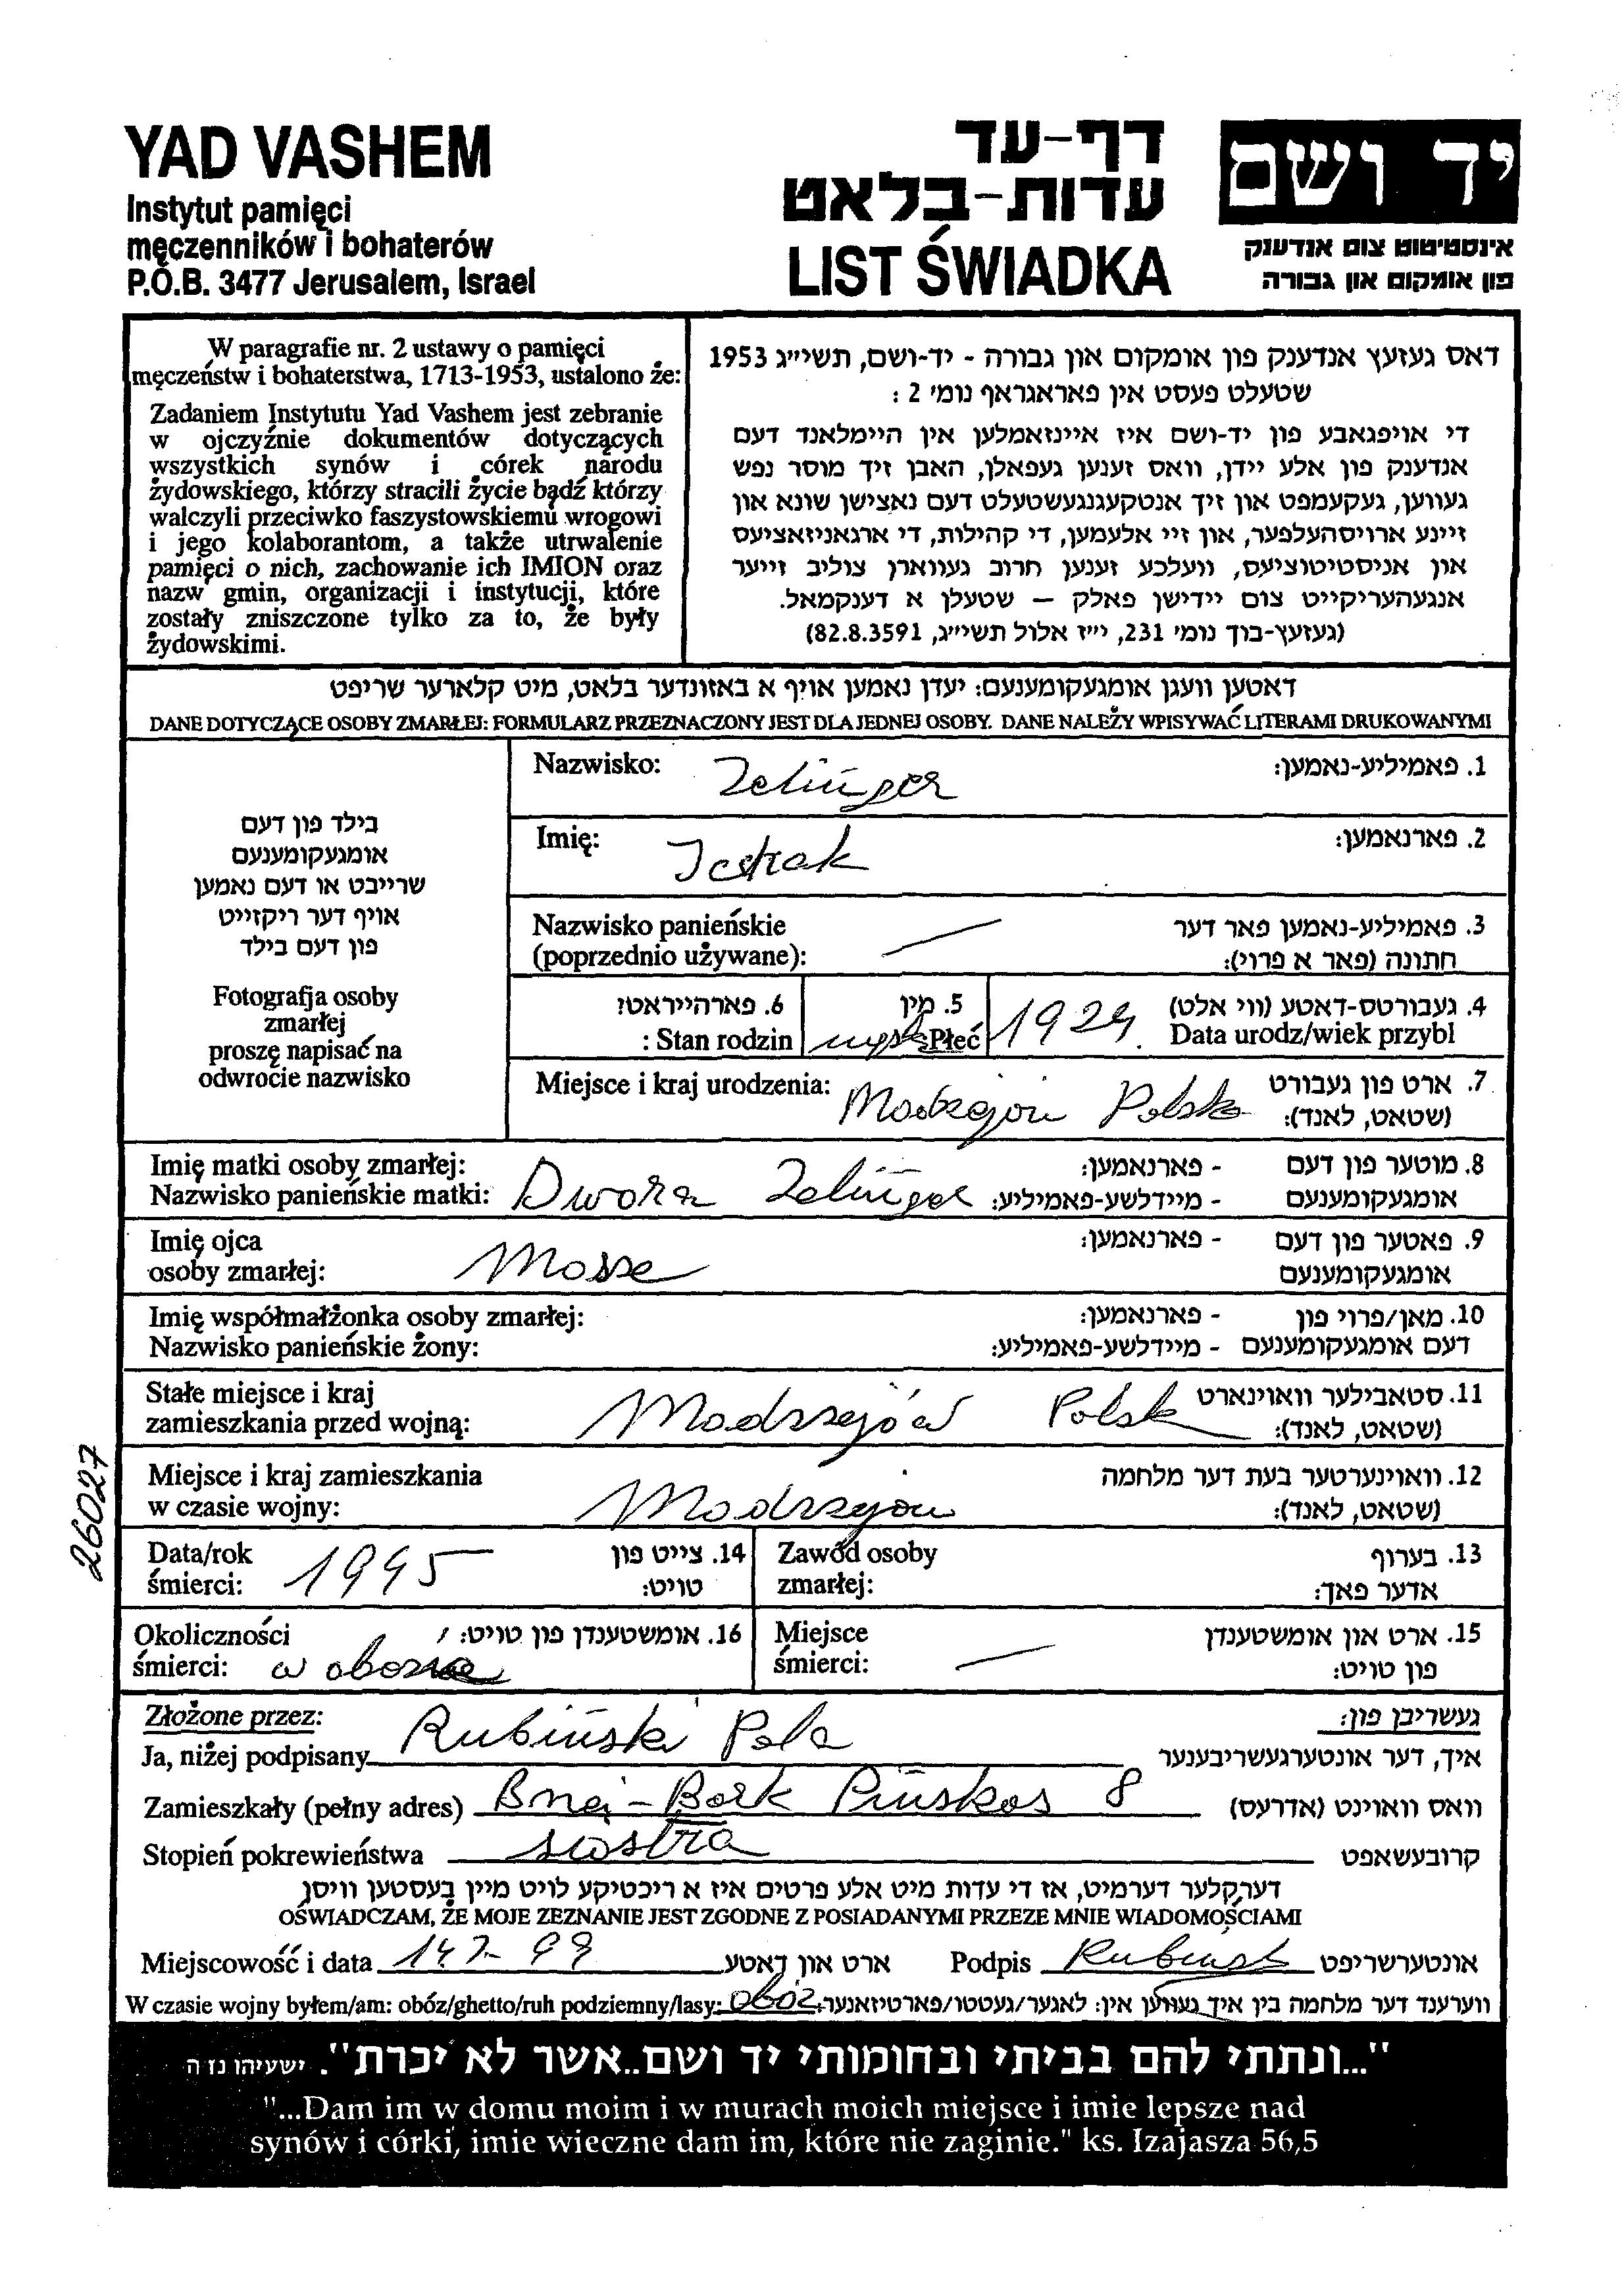 YAD VASHEM
Instytut pamięci
męczenników i bohaterów
P.O.B. 3477 Jerusalem, Israel
דף-עד
עדות-בלאט
LIST ŚWIADKA
יד ושם
אינסטיטוט צום אנדענק
פון אומקום און גבורה
W paragrafie nr. 2 ustawy o pamięci
męczeństw i bohaterstwa, 1713-1953, ustalono że:
Zadaniem Instytutu Yad Vashem jest zebranie
w ojczyźnie dokumentów dotyczących
wszystkich synów i córek narodu
żydowskiego, którzy stracili życie bądź którzy
walczyli przeciwko faszystowskiemu wrogowi
i jego kolaborantom, a także utrwalenie
pamięci o nich, zachowanie ich IMION oraz
nazw gmin, organizacji i instytucji, które
zostały zniszczone tylko za to, że były
żydowskimi.
דאס געזעץ אנדענק פון אומקום און גבורה - יד-ושם, תשי״ג 1953
שטעלט פעסט אין פאראגראף נומ׳ 2 :
די אויפגאבע פון יד-ושם איז איינזאמלען אין היימלאנד דעם
אנדענק פון אלע יידן, וואס זענען געפאלן, האבן זיך מוסר נפש
געווען, געקעמפט און זיך אנטקעגנגעשטעלט דעם נאצישן שונא און
זיינע ארויסהעלפער, און זיי אלעמען, די קהילות, די ארגאניזאציעס
און אניסטיטוציעס, וועלכע זענען חרוב געווארן צוליב זייער
אנגעהעריקייט צום יידישן פאלק – שטעלן א דענקמאל.
(געזעץ-בוך נומ׳ 231, י״ז אלול תשי״ג, 82.8.3591)
דאטען וועגן אומגעקומענעם: יעדן נאמען אויף א באזונדער בלאט, מיט קלארער שריפט
DANE DOTYCZĄCE OSOBY ZMARŁEJ: FORMULARZ PRZEZNACZONY JEST DLA JEDNEJ OSOBY. DANE NALEŻY WPISYWAĆ LITERAMI DRUKOWANYMI
בילד פון דעם
אומגעקומענעם
שרייבט או דעם נאמען
אויף דער ריקזייט
פון דעם בילד
Fotografja osoby
zmarłej
proszę napisać na
odwrocie nazwisko
Nazwisko: Zelinger 1. פאמיליע-נאמען:
Imię: Icchak 2. פארנאמען:
Nazwisko panieńskie — 3. פאמיליע-נאמען פאר דער
(poprzednio używane): חתונה (פאר א פרוי):
6. פארהייראט? 5. מין 4. געבורטס-דאטע (ווי אלט)
: Stan rodzin Płeć 1924. Data urodz/wiek przybl
Miejsce i kraj urodzenia: Polska 7. ארט פון געבורט
(שטאט, לאנד):
Imię matki osoby zmarłej: - פארנאמען: 8. מוטער פון דעם
Nazwisko panieńskie matki: Dwora Zelinger - מיידלשע-פאמיליע: אומגעקומענעם
Imię ojca - פארנאמען: 9. פאטער פון דעם
osoby zmarłej: Mosze אומגעקומענעם
Imię współmałżonka osoby zmarłej: - פארנאמען: 10. מאן/פרוי פון
Nazwisko panieńskie żony: - מיידלשע-פאמיליע: דעם אומגעקומענעם
Stałe miejsce i kraj 11. סטאבילער וואוינארט
zamieszkania przed wojną: Modrzejów Polsk (שטאט, לאנד):
Miejsce i kraj zamieszkania 12. וואוינערטער בעת דער מלחמה
w czasie wojny: Modrzejow (שטאט, לאנד):
26027
Data/rok 14. צייט פון Zawód osoby 13. בערוף
śmierci: 1945 טויט: zmarłej: אדער פאך:
Okoliczności 16. אומשטענדן פון טויט: Miejsce 15. ארט און אומשטענדן
śmierci: w obozie śmierci: — פון טויט:
Złożone przez: געשריבן פון:
Ja, niżej podpisany Rubiński Pola איך, דער אונטערגעשריבענער
Zamieszkały (pełny adres) Bnej-Bark Pinskos 8 וואס וואוינט (אדרעס)
Stopień pokrewieństwa siostra קרובעשאפט
דערקלער דערמיט, אז די עדות מיט אלע פרטים איז א ריכטיקע לויט מיין בעסטען וויסן
OŚWIADCZAM, ŻE MOJE ZEZNANIE JEST ZGODNE Z POSIADANYMI PRZEZE MNIE WIADOMOŚCIAMI
Miejscowość i data ארט און דאטע Podpis Rubinsk אונטערשריפט
W czasie wojny byłem/am: obóz/ghetto/ruh podziemny/lasy: obóz ווערענד דער מלחמה בין איך געווען אין: לאגער/געטטו/פארטיזאנער
"...ונתתי להם בביתי ובחומותי יד ושם..אשר לא יכרת". ישעיהו נז ה
"...Dam im w domu moim i w murach moich miejsce i imie lepsze nad
synów i córki, imie wieczne dam im, które nie zaginie." ks. Izajasza 56,5